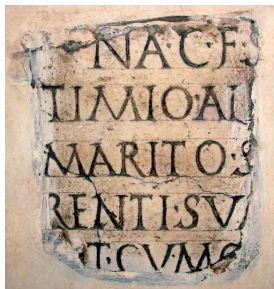 NA·C·F·
TIMIO·AL
MARITO·S
RENTI·SV
T·CVM·S